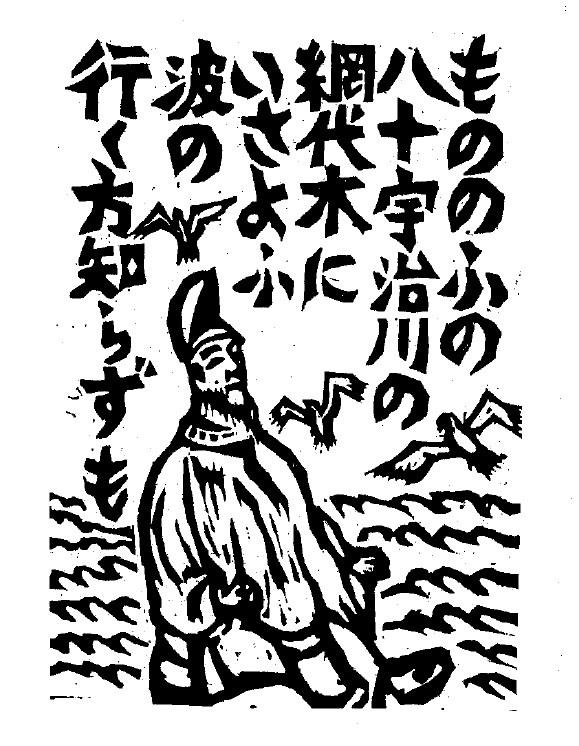 もののふの
八十宇治川の
網代木に
いさよふ
波の
行く方知らずも